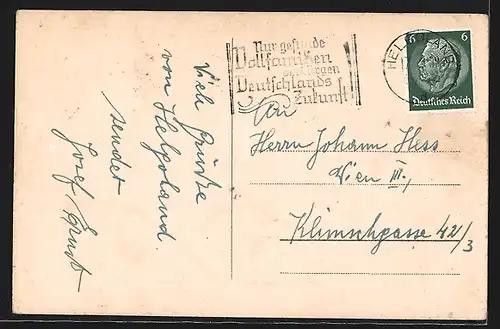 Viele Grüße
von Helgoland
sendet
Josef Ernst
Nur gesunde
Vollfamilien
Deutschlands
Zukunft!
HELGOLAND
6 6
Deutsches Reich
An
Herrn Johann Hess
Wien III.,
Klimschgasse 42/3